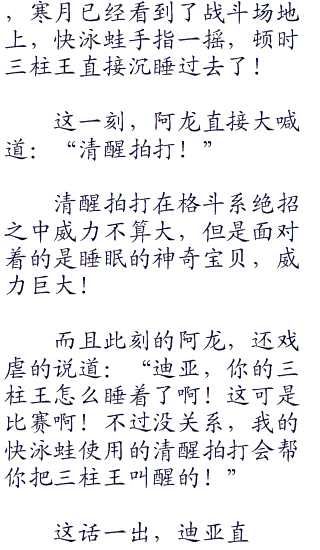 ，寒月已经看到了战斗场地
上，快泳蛙手指一摇，顿时
三柱王直接沉睡过去了！
这一刻，阿龙直接大喊
道：“清醒拍打！”
清醒拍打在格斗系绝招
之中威力不算大，但是面对
着的是睡眠的神奇宝贝，威
力巨大！
而且此刻的阿龙，还戏
虐的说道：“迪亚，你的三
柱王怎么睡着了啊！这可是
比赛啊！不过没关系，我的
快泳蛙使用的清醒拍打会帮
你把三柱王叫醒的！”
这话一出，迪亚直